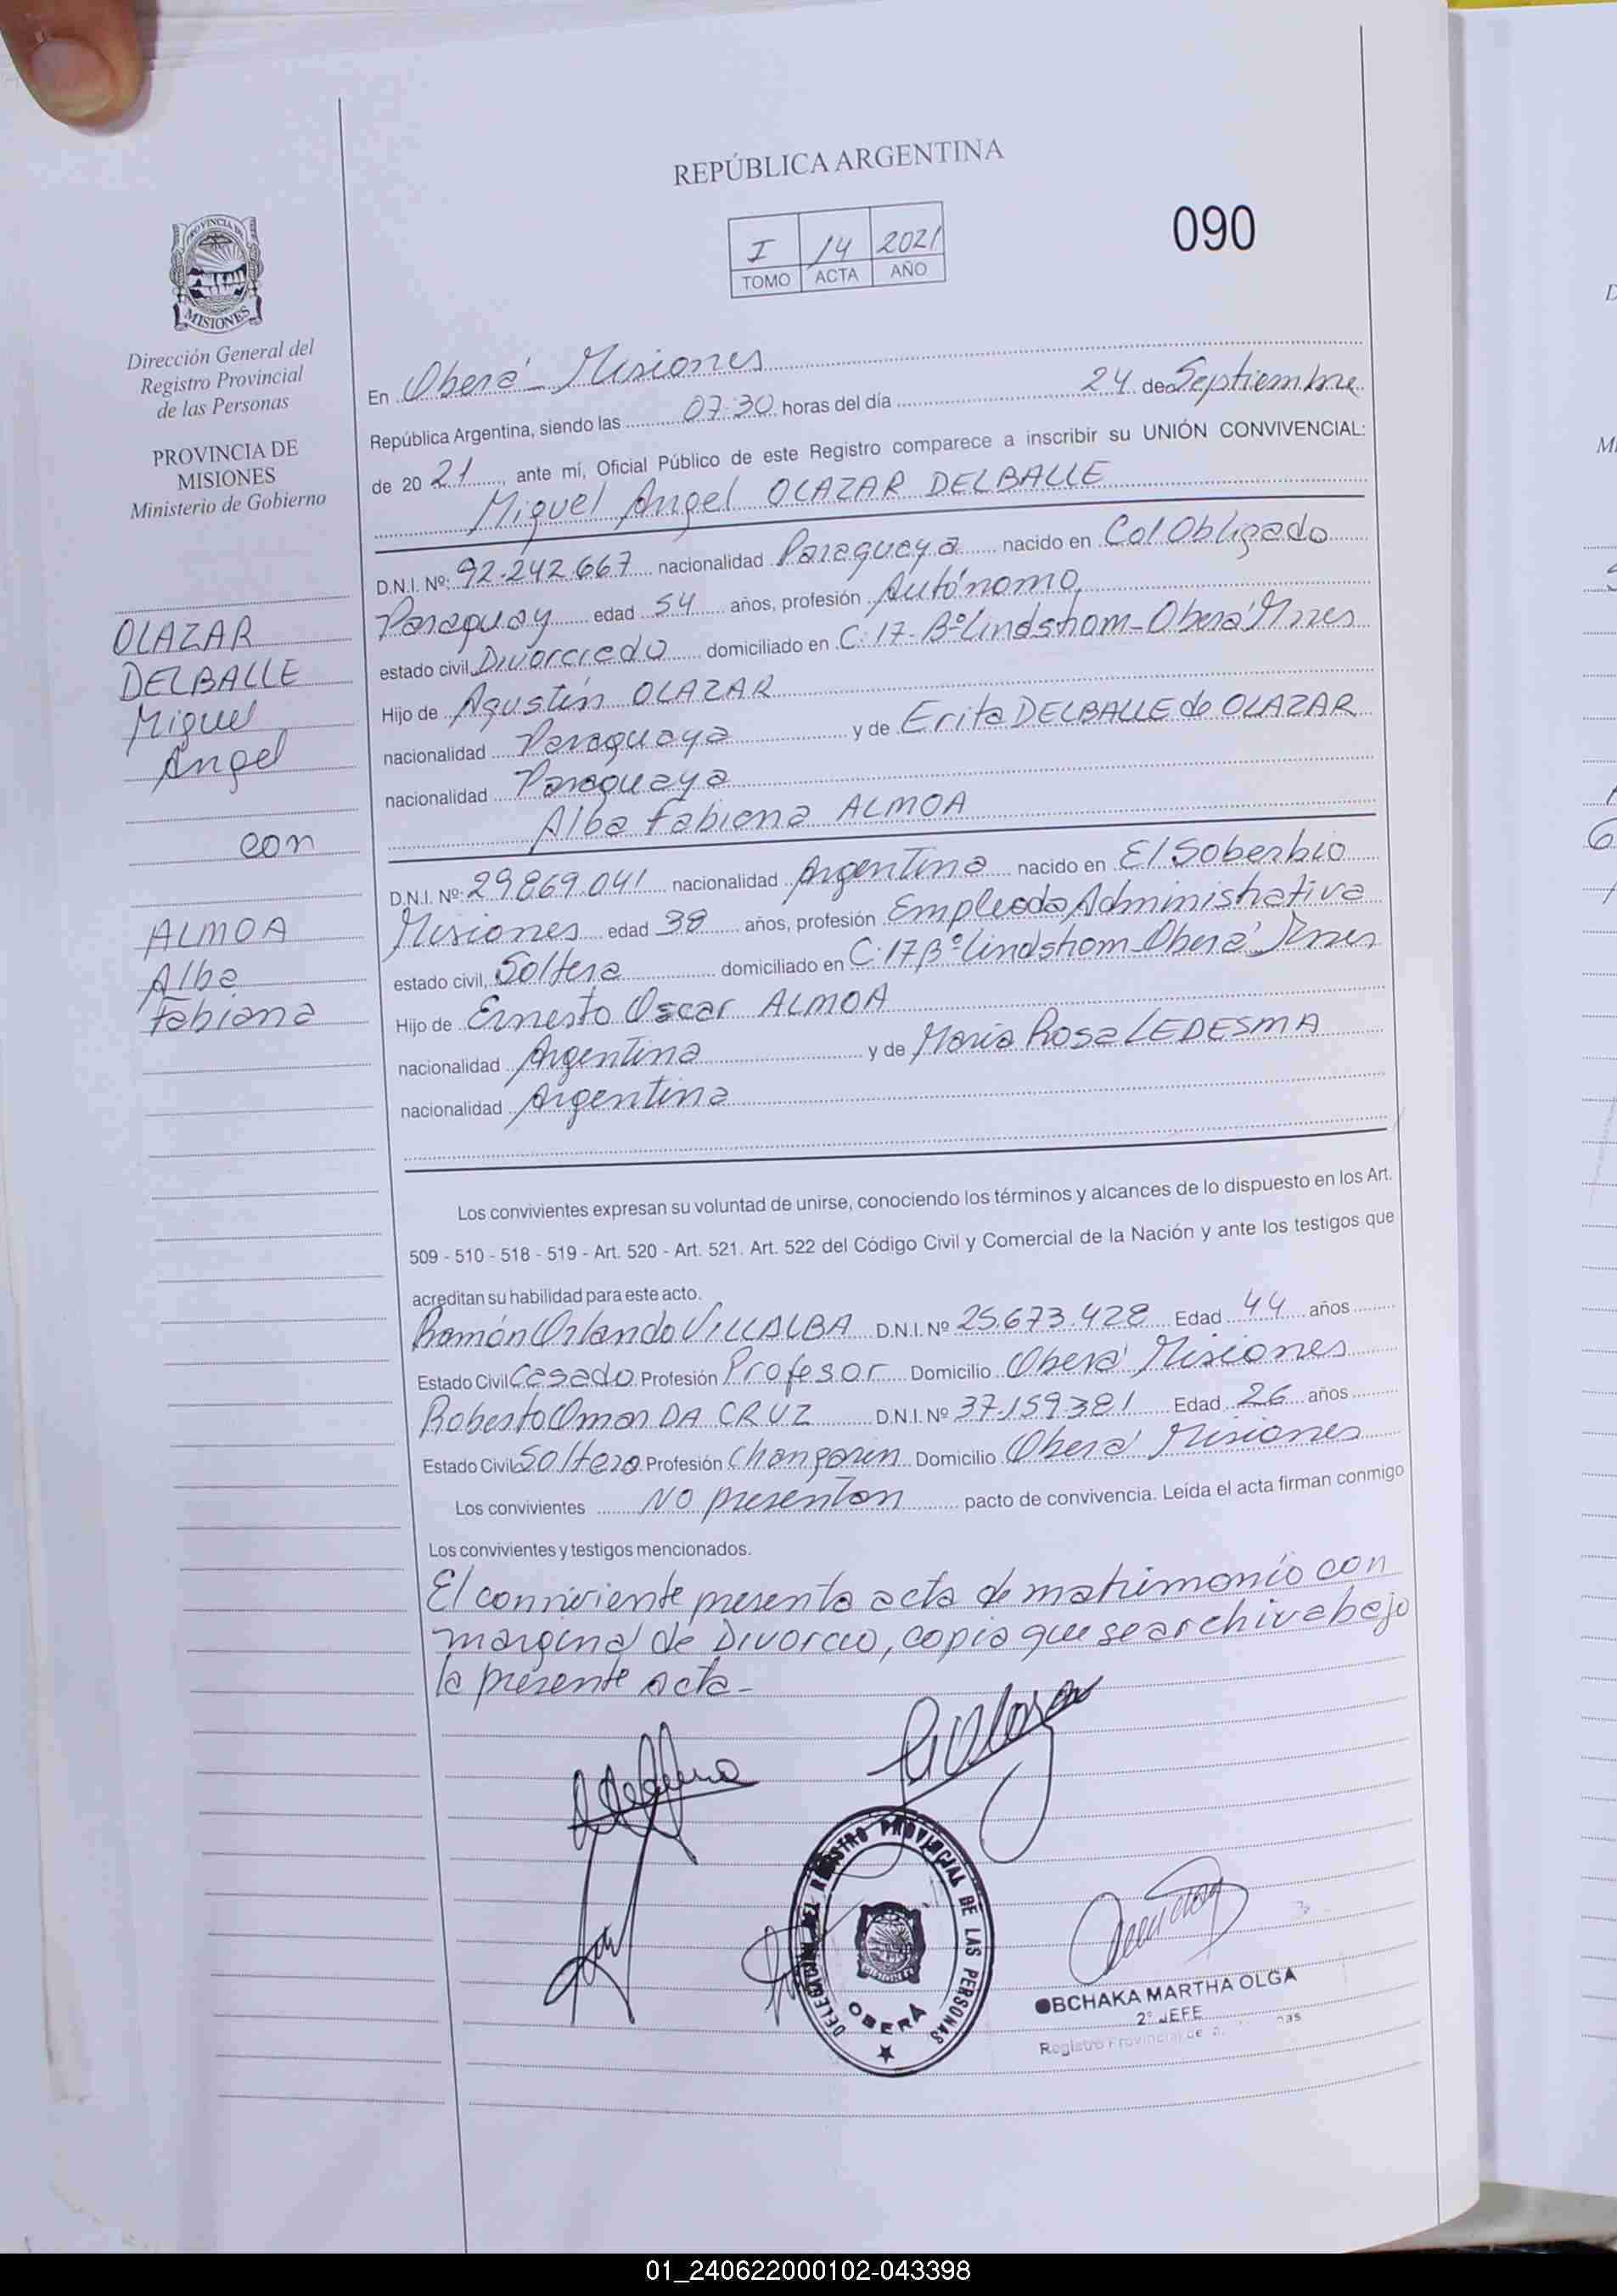 REPÚBLICA ARGENTINA
090
I 14 2021
TOMO ACTA AÑO
PROVINCIA DE
MISIONES
Dirección General del
Registro Provincial
de las Personas
PROVINCIA DE
MISIONES
Ministerio de Gobierno
OLAZAR
DELBALLE
Miguel
Angel
con
ALMOA
Alba
Fabiana
En Oberá - Misiones
República Argentina, siendo las 07:30 horas del día 24 de Septiembre
de 20 21, ante mí, Oficial Público de este Registro comparece a inscribir su UNIÓN CONVIVENCIAL:
Miguel Angel OLAZAR DELBALLE
D.N.I. Nº: 92.242.667 nacionalidad Paraguaya nacido en Col Obligado
Paraguay edad 54 años, profesión Autónomo,
estado civil Divorciado domiciliado en C: 17- Bº Lindstrom - Oberá Mnes
Hijo de Agustín OLAZAR
nacionalidad Paraguaya y de Erita DELBALLE de OLAZAR
nacionalidad Paraguaya
Alba Fabiana ALMOA
D.N.I. Nº: 29.869.041 nacionalidad Argentina nacido en El Soberbio
Misiones edad 38 años, profesión Empleada Administrativa
estado civil, Soltera domiciliado en C: 17 Bº Lindstrom - Oberá Mnes
Hijo de Ernesto Oscar ALMOA
nacionalidad Argentina y de María Rosa LEDESMA
nacionalidad Argentina
Los convivientes expresan su voluntad de unirse, conociendo los términos y alcances de lo dispuesto en los Art.
509 - 510 - 518 - 519 - Art. 520 - Art. 521. Art. 522 del Código Civil y Comercial de la Nación y ante los testigos que
acreditan su habilidad para este acto.
Ramón Orlando VILLALBA D.N.I. Nº 25.673.428 Edad 44 años
Estado Civil Casado Profesión Profesor Domicilio Oberá Misiones
Roberto Omar DA CRUZ D.N.I. Nº 37.159.381 Edad 26 años
Estado Civil Soltero Profesión Changarin Domicilio Oberá Misiones
Los convivientes NO presentan pacto de convivencia. Leída el acta firman conmigo
Los convivientes y testigos mencionados.
El conviviente presenta acta de matrimonio con
marginal de Divorcio, copia que se archiva bajo
la presente acta-
DELEGACION DEL REGISTRO PROVINCIAL DE LAS PERSONAS
OBERÁ
OBCHAKA MARTHA OLGA
2º JEFE
Registro Provincial de
01_240622000102-043398